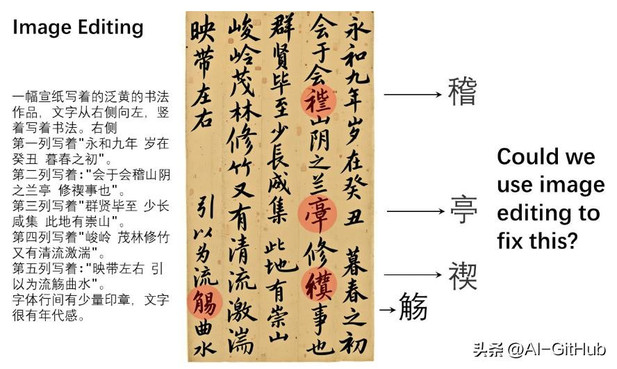 Image Editing
一幅宣纸写着的泛黄的书法
作品，文字从右侧向左，竖
着写着书法。右侧
第一列写着"永和九年 岁在
癸丑 暮春之初"。
第二列写着:"会于会稽山阴
之兰亭 修禊事也"。
第三列写着"群贤毕至 少长
咸集 此地有崇山"。
第四列写着"峻岭 茂林修竹
又有清流激湍"。
第五列写着:"映带左右 引
以为流觞曲水"。
字体行间有少量印章，文字
很有年代感。
永和九年岁在癸丑 暮春之初
会于会山阴之兰 修事也
群贤毕至少長咸集 此地有崇山
峻岭茂林修竹又有清流激湍
映带左右 引以为流曲水
稽
亭
禊
觞
Could we
use image
editing to
fix this?
头条 @AI-GitHub